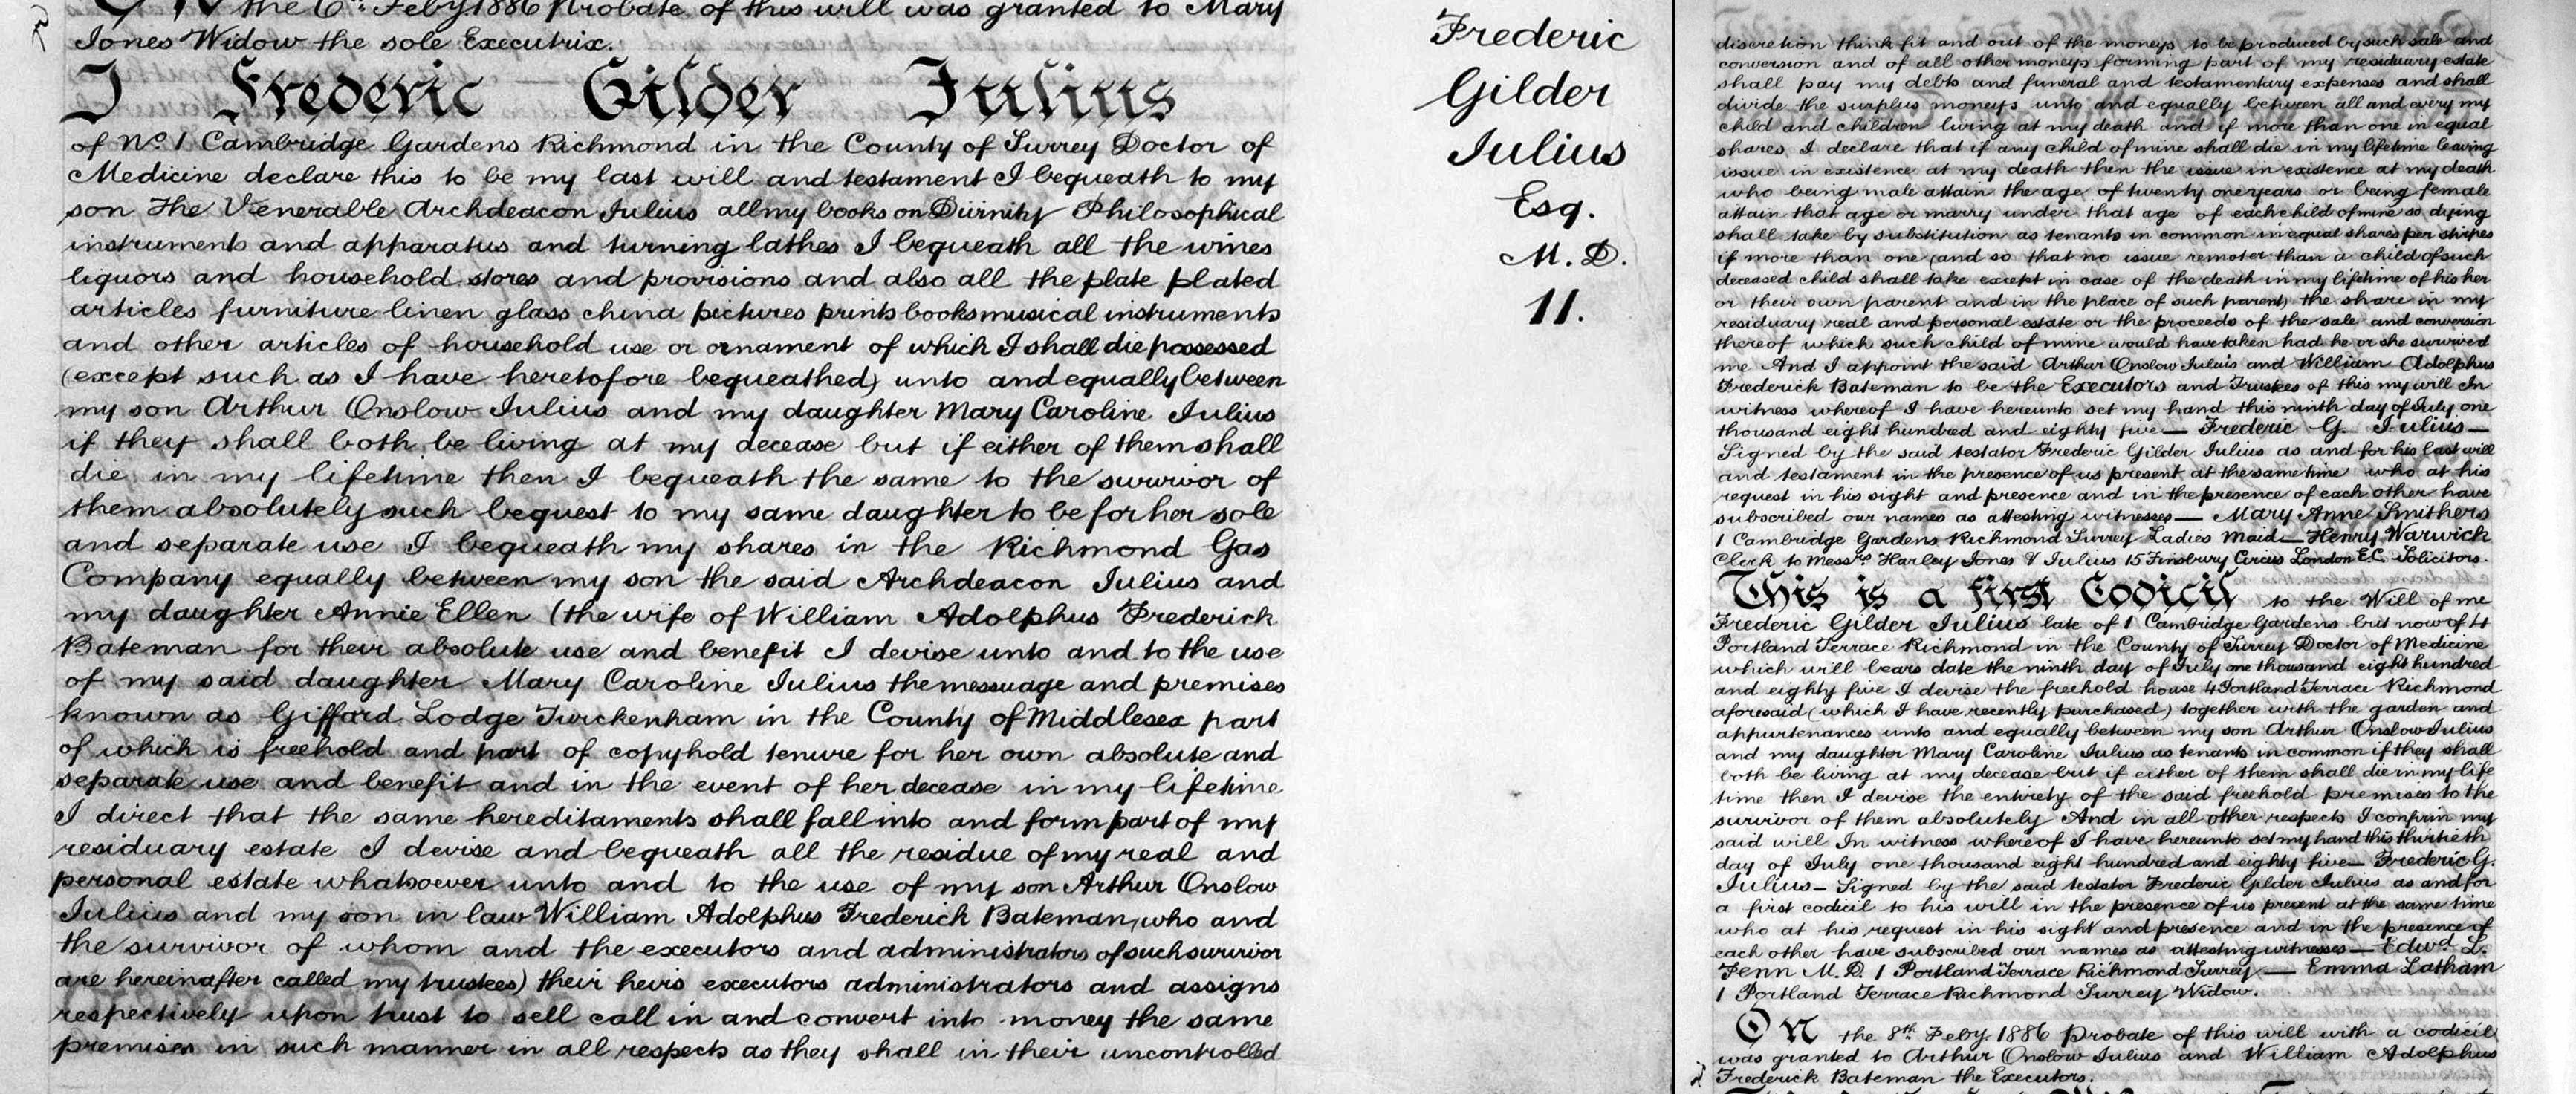 On the 6th Feby 1886 Probate of this will was granted to Mary
Jones Widow the sole Executrix.
I Frederic Gilder Julius
of No. 1 Cambridge Gardens Richmond in the County of Surrey Doctor of
Medicine declare this to be my last will and testament I bequeath to my
son The Venerable Archdeacon Julius all my books on Divinity Philosophical
instruments and apparatus and turning lathes I bequeath all the wines
liquors and household stores and provisions and also all the plate plated
articles furniture linen glass china pictures prints books musical instruments
and other articles of household use or ornament of which I shall die possessed
(except such as I have heretofore bequeathed) unto and equally between
my son Arthur Onslow Julius and my daughter Mary Caroline Julius
if they shall both be living at my decease but if either of them shall
die in my lifetime then I bequeath the same to the survivor of
them absolutely such bequest to my same daughter to be for her sole
and separate use I bequeath my shares in the Richmond Gas
Company equally between my son the said Archdeacon Julius and
my daughter Annie Ellen (the wife of William Adolphus Frederick
Bateman for their absolute use and benefit I devise unto and to the use
of my said daughter Mary Caroline Julius the messuage and premises
known as Giffard Lodge Twickenham in the County of Middlesex part
of which is freehold and part of copyhold tenure for her own absolute and
separate use and benefit and in the event of her decease in my lifetime
I direct that the same hereditaments shall fall into and form part of my
residuary estate I devise and bequeath all the residue of my real and
personal estate whatsoever unto and to the use of my son Arthur Onslow
Julius and my son in law William Adolphus Frederick Bateman, who and
the survivor of whom and the executors and administrators of such survivor
are hereinafter called my trustees) their heirs executors administrators and assigns
respectively upon trust to sell call in and convert into money the same
premises in such manner in all respects as they shall in their uncontrolled
Frederic
Gilder
Julius
Esq.
M. D.
11.
discretion think fit and out of the moneys to be produced by such sale and
conversion and of all other moneys forming part of my residuary estate
shall pay my debts and funeral and testamentary expenses and shall
divide the surplus moneys unto and equally between all and every my
child and children living at my death and if more than one in equal
shares I declare that if any child of mine shall die in my lifetime leaving
issue in existence at my death then the issue in existence at my death
who being male attain the age of twenty one years or being female
attain that age or marry under that age of each child of mine so dying
shall take by substitution as tenants in common in equal shares per stirpes
if more than one (and so that no issue remoter than a child of such
deceased child shall take except in case of the death in my lifetime of his her
or their own parent and in the place of such parent) the share in my
residuary real and personal estate or the proceeds of the sale and conversion
thereof which such child of mine would have taken had he or she survived
me And I appoint the said Arthur Onslow Julius and William Adolphus
Frederick Bateman to be the Executors and Trustees of this my will In
witness whereof I have hereunto set my hand this ninth day of July one
thousand eight hundred and eighty five — Frederic G. Julius —
Signed by the said testator Frederic Gilder Julius as and for his last will
and testament in the presence of us present at the same time who at his
request in his sight and presence and in the presence of each other have
subscribed our names as attesting witnesses — Mary Anne Smithers
1 Cambridge Gardens Richmond Surrey Ladies Maid — Henry Warwick
Clerk to Messrs Harley Jones & Julius 15 Finsbury Circus London E.C. Solicitors.
This is a first Codicil to the Will of me
Frederic Gilder Julius late of 1 Cambridge Gardens but now of 4
Portland Terrace Richmond in the County of Surrey Doctor of Medicine
which will bears date the ninth day of July one thousand eight hundred
and eighty five I devise the freehold house 4 Portland Terrace Richmond
aforesaid (which I have recently purchased) together with the garden and
appurtenances unto and equally between my son Arthur Onslow Julius
and my daughter Mary Caroline Julius as tenants in common if they shall
both be living at my decease but if either of them shall die in my life
time then I devise the entirety of the said freehold premises to the
survivor of them absolutely And in all other respects I confirm my
said will In witness whereof I have hereunto set my hand this thirtieth
day of July one thousand eight hundred and eighty five — Frederic G.
Julius — Signed by the said testator Frederic Gilder Julius as and for
a first codicil to his will in the presence of us present at the same time
who at his request in his sight and presence and in the presence of
each other have subscribed our names as attesting witnesses — Edwd L.
Fenn M. D. 1 Portland Terrace Richmond Surrey — Emma Latham
1 Portland Terrace Richmond Surrey Widow.
On the 8th Feby 1886 Probate of this will with a codicil
was granted to Arthur Onslow Julius and William Adolphus
Frederick Bateman the Executors.